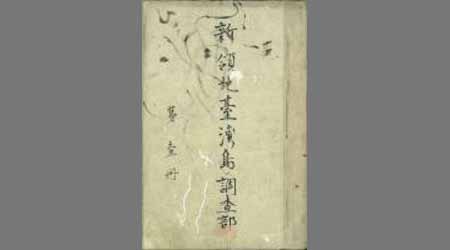 新領地臺灣島調査部
第壹冊